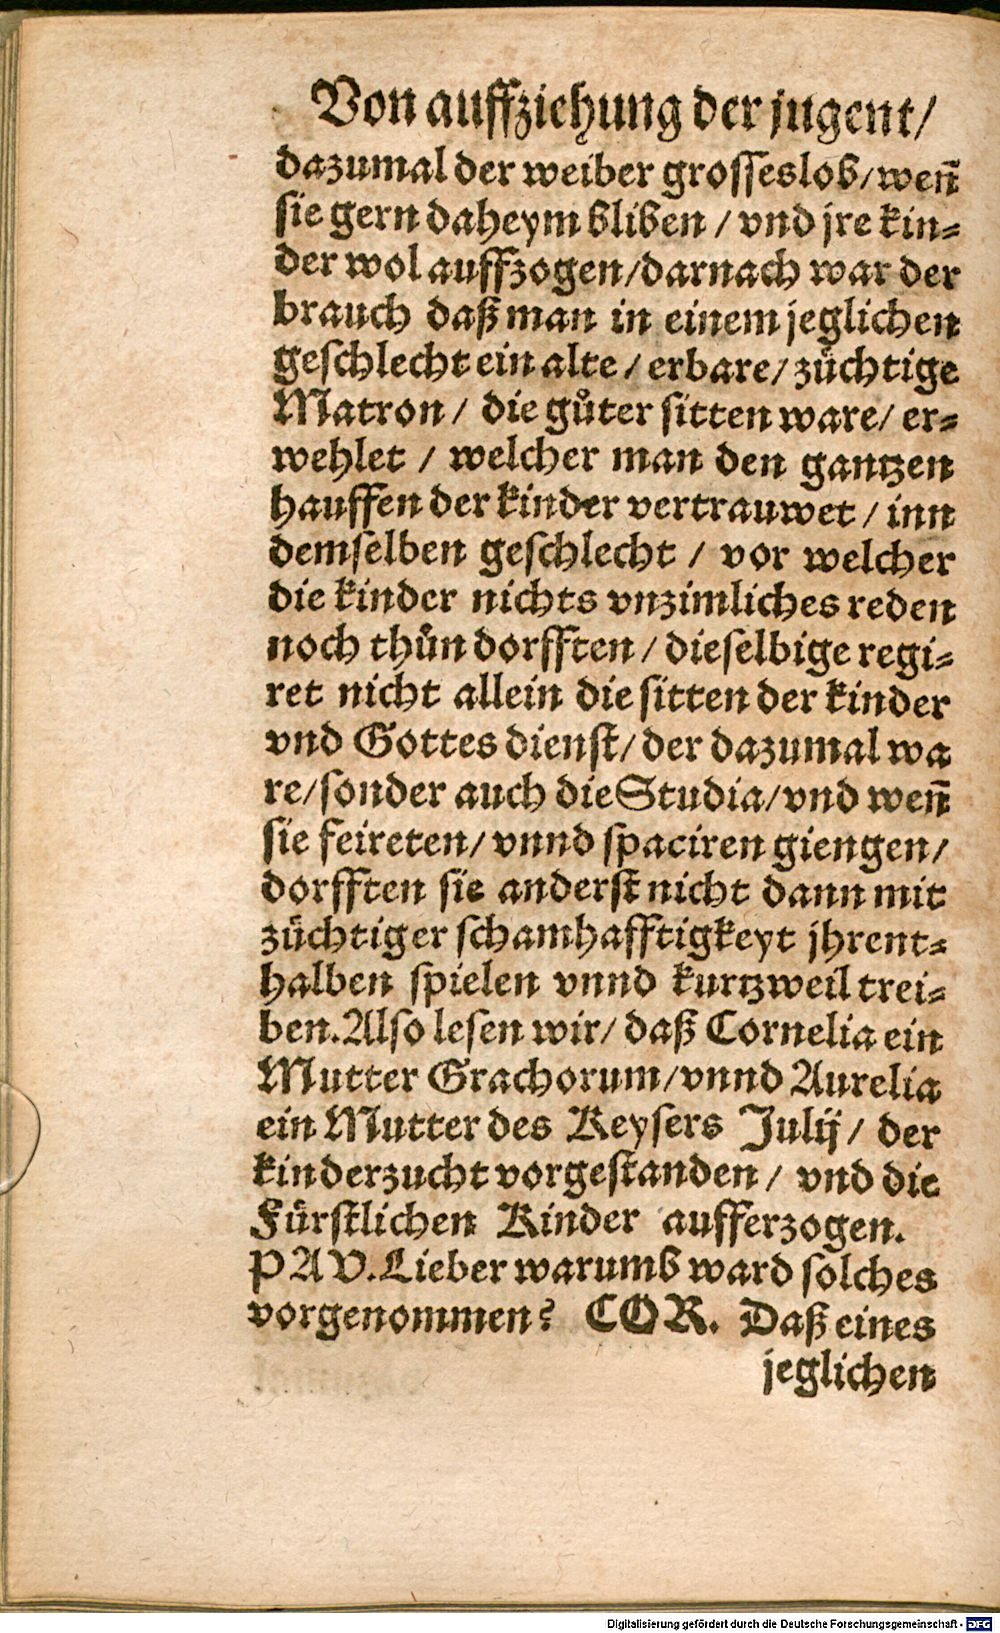 Von auffziehung der jugent/
dazumal der weiber grosses lob/ wen̄
sie gern daheym bliben / vnd jre kin⸗
der wol auffzogen/ darnach war der
brauch daß man in einem jeglichen
geschlecht ein alte / erbare/ zuͤchtige
Matron / die guͦter sitten ware/ er⸗
wehlet / welcher man den gantzen
hauffen der kinder vertrauwet / inn
demselben geschlecht / vor welcher
die kinder nichts vnzimliches reden
noch thuͦn dorfften / dieselbige regi⸗
ret nicht allein die sitten der kinder
vnd Gottes dienst/ der dazumal wa
re/ sonder auch die Studia/ vnd wen̄
sie feireten/ vnnd spaciren giengen/
dorfften sie anderst nicht dann mit
zuͤchtiger schamhafftigkeyt jhrent⸗
halben spielen vnnd kurtzweil trei⸗
ben. Also lesen wir/ daß Cornelia ein
Mutter Grachorum/ vnnd Aurelia
ein Mutter des Keysers Julij / der
kinderzucht vorgestanden / vnd die
Fuͤrstlichen Kinder aufferzogen.
PAV. Lieber warumb ward solches
vorgenommen? COR. Daß eines
jeglichen
Digitalisierung gefördert durch die Deutsche Forschungsgemeinschaft - DFG